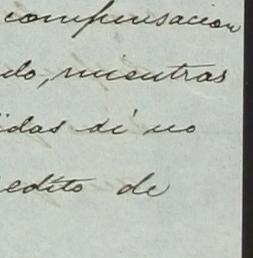 compensacion
do, mientras
idas si no
edito de